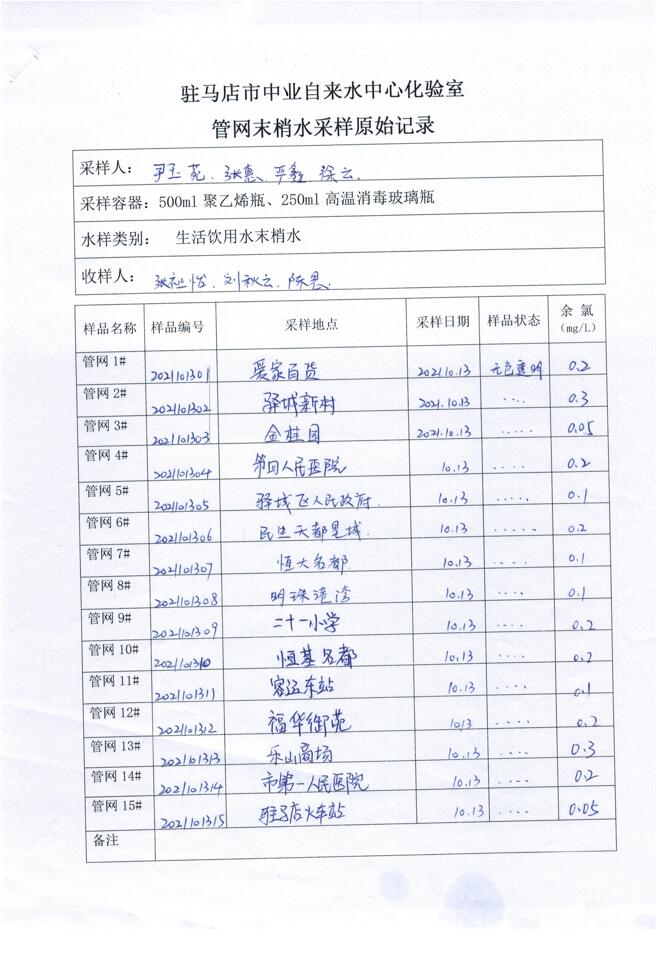 驻马店市中业自来水中心化验室
管网末梢水采样原始记录
采样人： 尹玉苑、张惠、严鑫、徐云.
采样容器：500ml 聚乙烯瓶、250ml 高温消毒玻璃瓶
水样类别： 生活饮用水末梢水
收样人： 张 怡、刘秋云、陈思.
样品名称 样品编号 采样地点 采样日期 样品状态 余 氯 (mg/L)
管网 1# 2021101301 爱家百货 2021.10.13 无色透明 0.2
管网 2# 2021101302 驿城新村 2021.10.13 .... 0.3
管网 3# 2021101303 金桂园 2021.10.13 ..... 0.05
管网 4# 2021101304 第四人民医院 10.13 .... 0.2
管网 5# 2021101305 驿城区人民政府. 10.13 ..... 0.1
管网 6# 2021101306 民生天都星城. 10.13 ..... 0.2
管网 7# 2021101307 恒大名都 10.13 .... 0.1
管网 8# 2021101308 明珠港湾 10.13 .... 0.1
管网 9# 2021101309 二十一小学 10.13 .... 0.2
管网 10# 2021101310 恒基名都 10.13 .... 0.2
管网 11# 2021101311 客运东站 10.13 .... 0.1
管网 12# 2021101312 福华御苑 1013 .... 0.2
管网 13# 2021101313 乐山商场 10.13 .... 0.3
管网 14# 2021101314 市第一人民医院 10.13 .... 0.2
管网 15# 2021101315 驻马店火车站 10.13 .... 0.05
备注